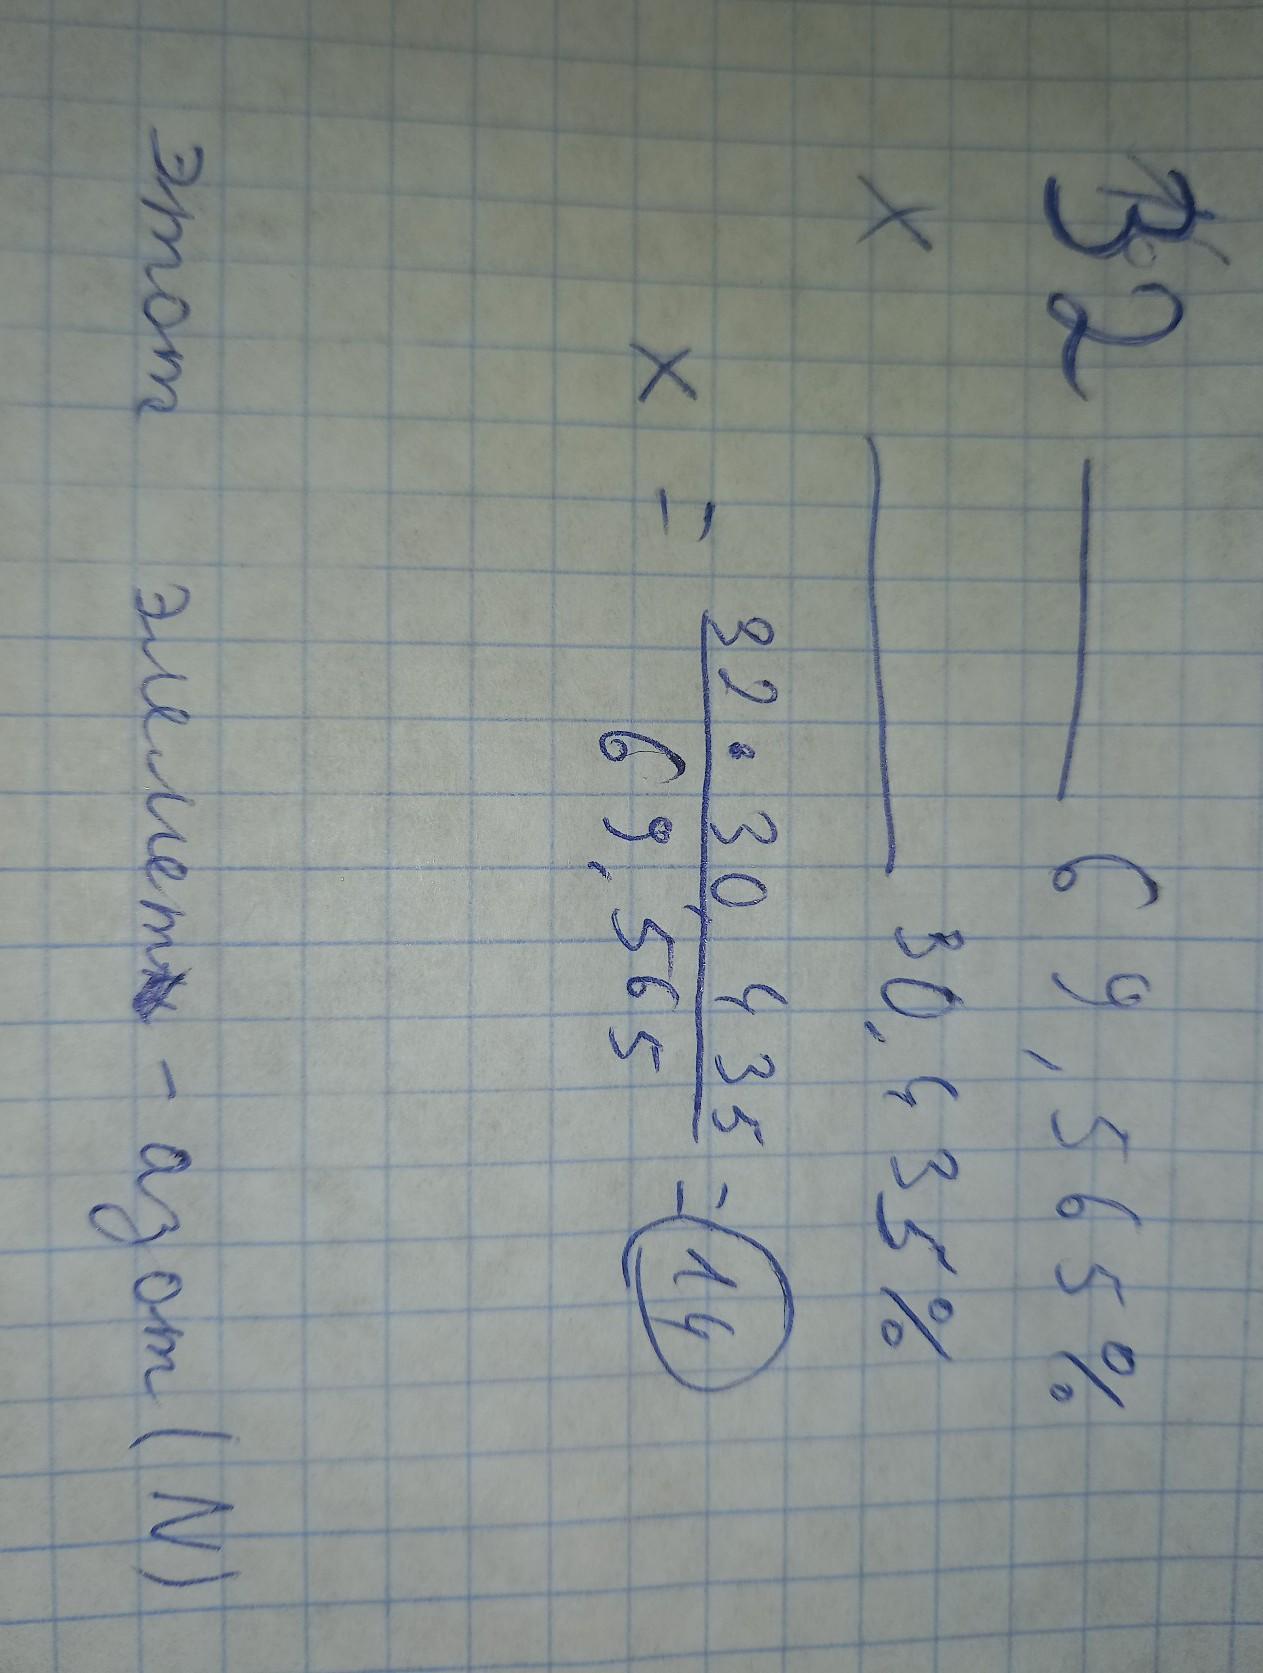 32 — 69,565%
x — 30,435%
x = 32·30,435 / 69,565 = 14
этот элемент - азот (N)